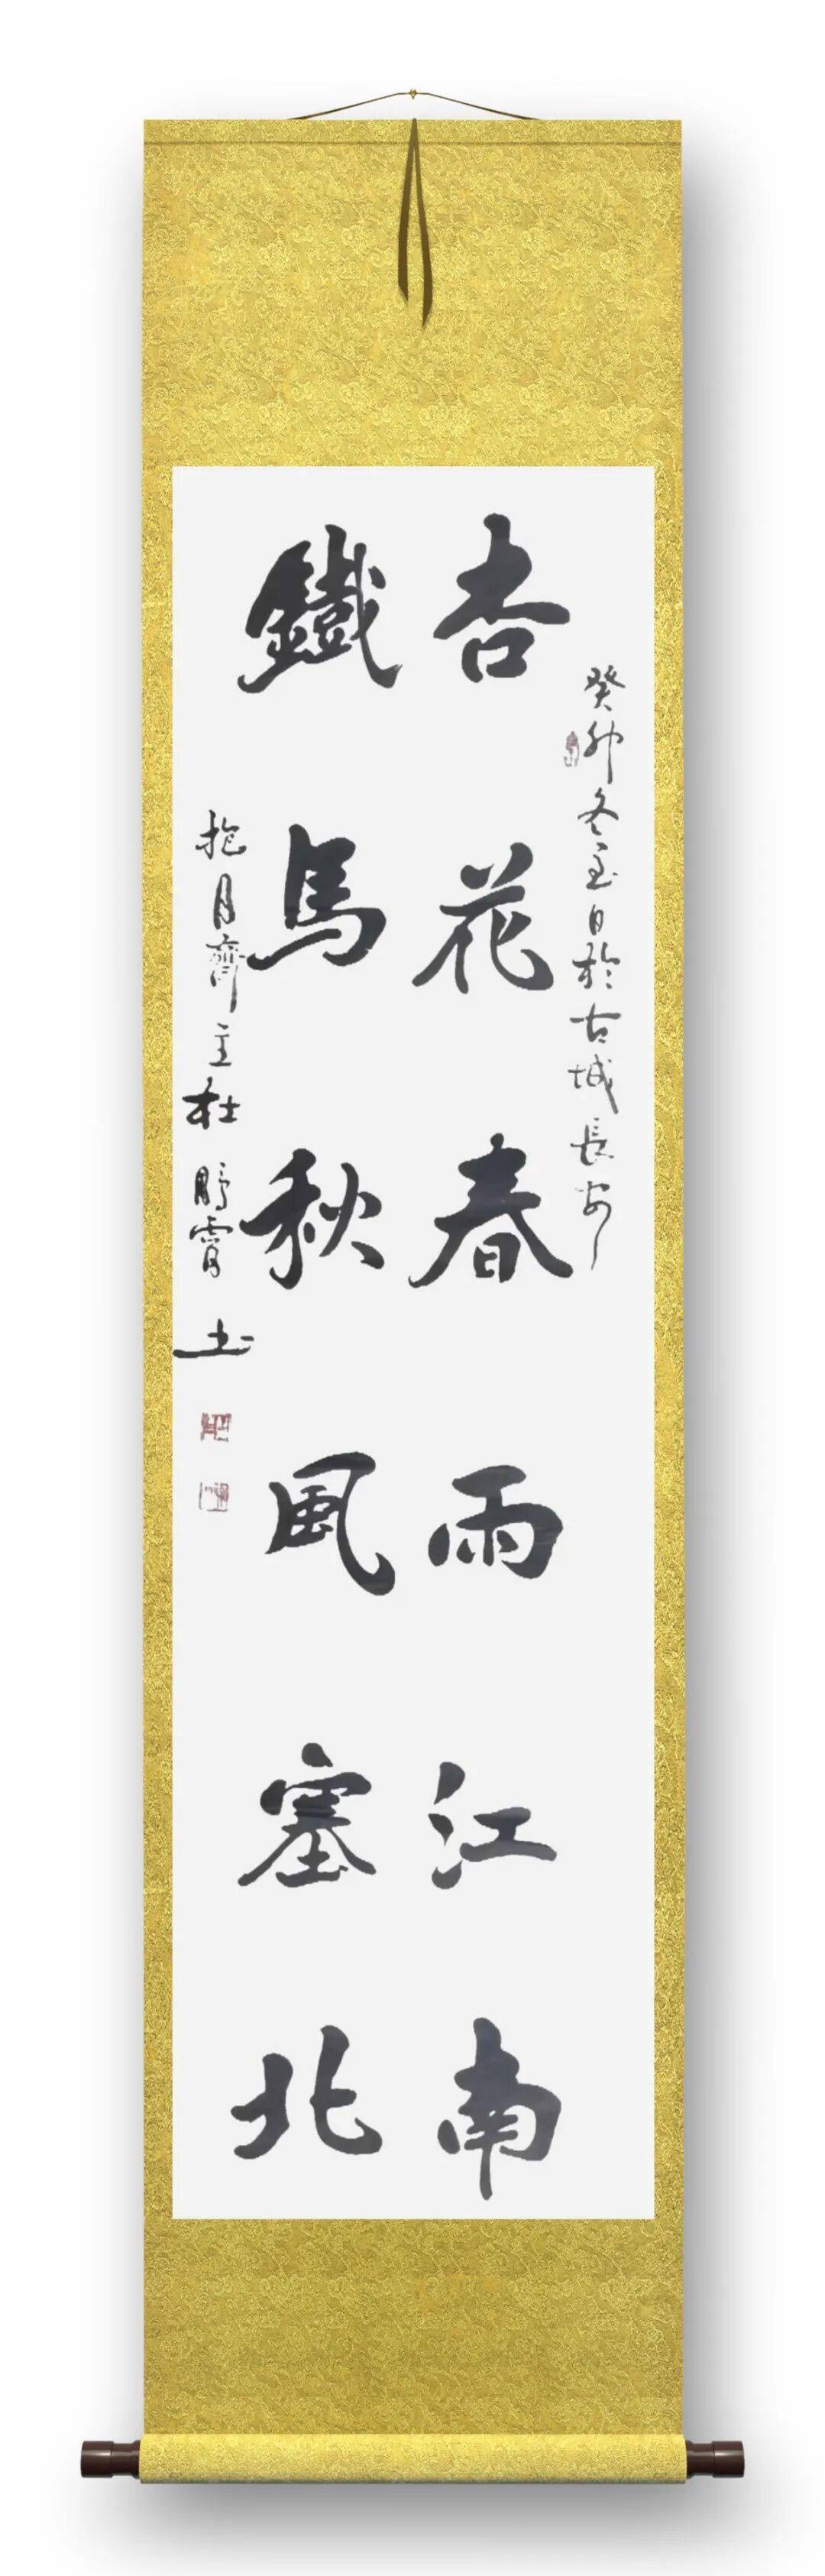 癸卯冬至日於古城長安
杏花春雨江南
鐵馬秋風塞北
抱月齋主杜
霄